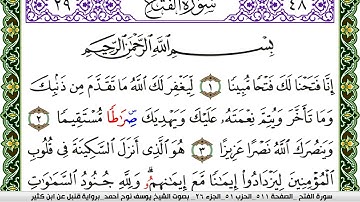 ٢٩ سُورَةُ الفَتْحِ ٤٨
بِسْمِ اللَّهِ الرَّحْمَٰنِ الرَّحِيمِ
إِنَّا فَتَحْنَا لَكَ فَتْحًا مُّبِينًا ١ لِّيَغْفِرَ لَكَ اللَّهُ مَا تَقَدَّمَ مِن ذَنۢبِكَ
وَمَا تَأَخَّرَ وَيُتِمَّ نِعْمَتَهُۥ عَلَيْكَ وَيَهْدِيَكَ صِرَٰطًا مُّسْتَقِيمًا ٢
وَيَنصُرَكَ اللَّهُ نَصْرًا عَزِيزًا ٣ هُوَ الَّذِي أَنزَلَ السَّكِينَةَ فِي قُلُوبِ
الْمُؤْمِنِينَ لِيَزْدَادُوا إِيمَانًا مَّعَ إِيمَانِهِمُۥ وَلِلَّهِ جُنُودُ السَّمَاوَاتِ
سورة الفتح _ الصفحة ٥١١ _الحزب ٥١ _الجزء ٢٦ _ بصوت الشيخ يوسف نوح أحمد _برواية قنبل عن ابن كثير